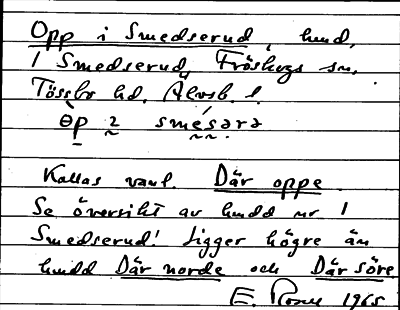 Opp i Smedserud, hmd,
1 Smedserud, Fröskogs sn,
Tössbo hd, Älvsb. l.
Kallas vanl. Där oppe.
Se översikt av hmdd nr 1
Smedserud! Ligger högre än
hmdd Där norde och Där söre
E. 1965